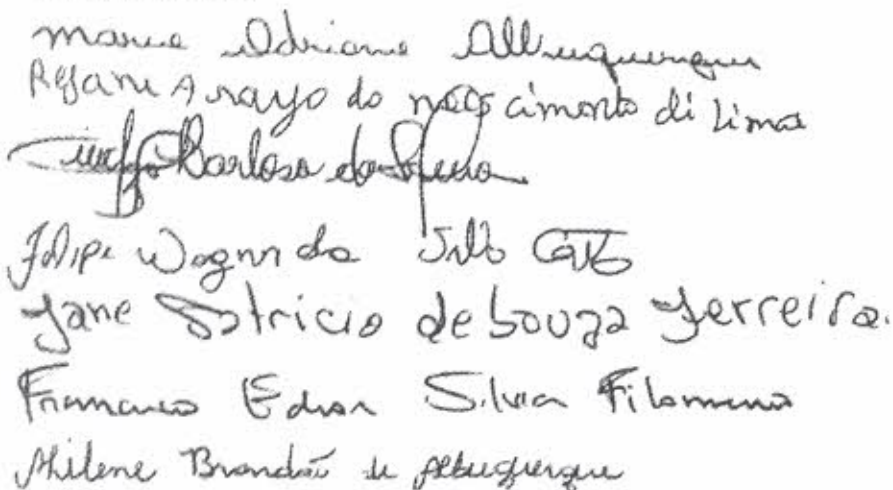 Maria Adriana Albuquerque
Rejane Araujo do nascimento di Lima
Barbosa da
Felipe Wagner da Silva
Jane Patricia de Souza Ferreira.
Francisco Edson Silvia Filomeno
Milene Brandão de Albuquerque